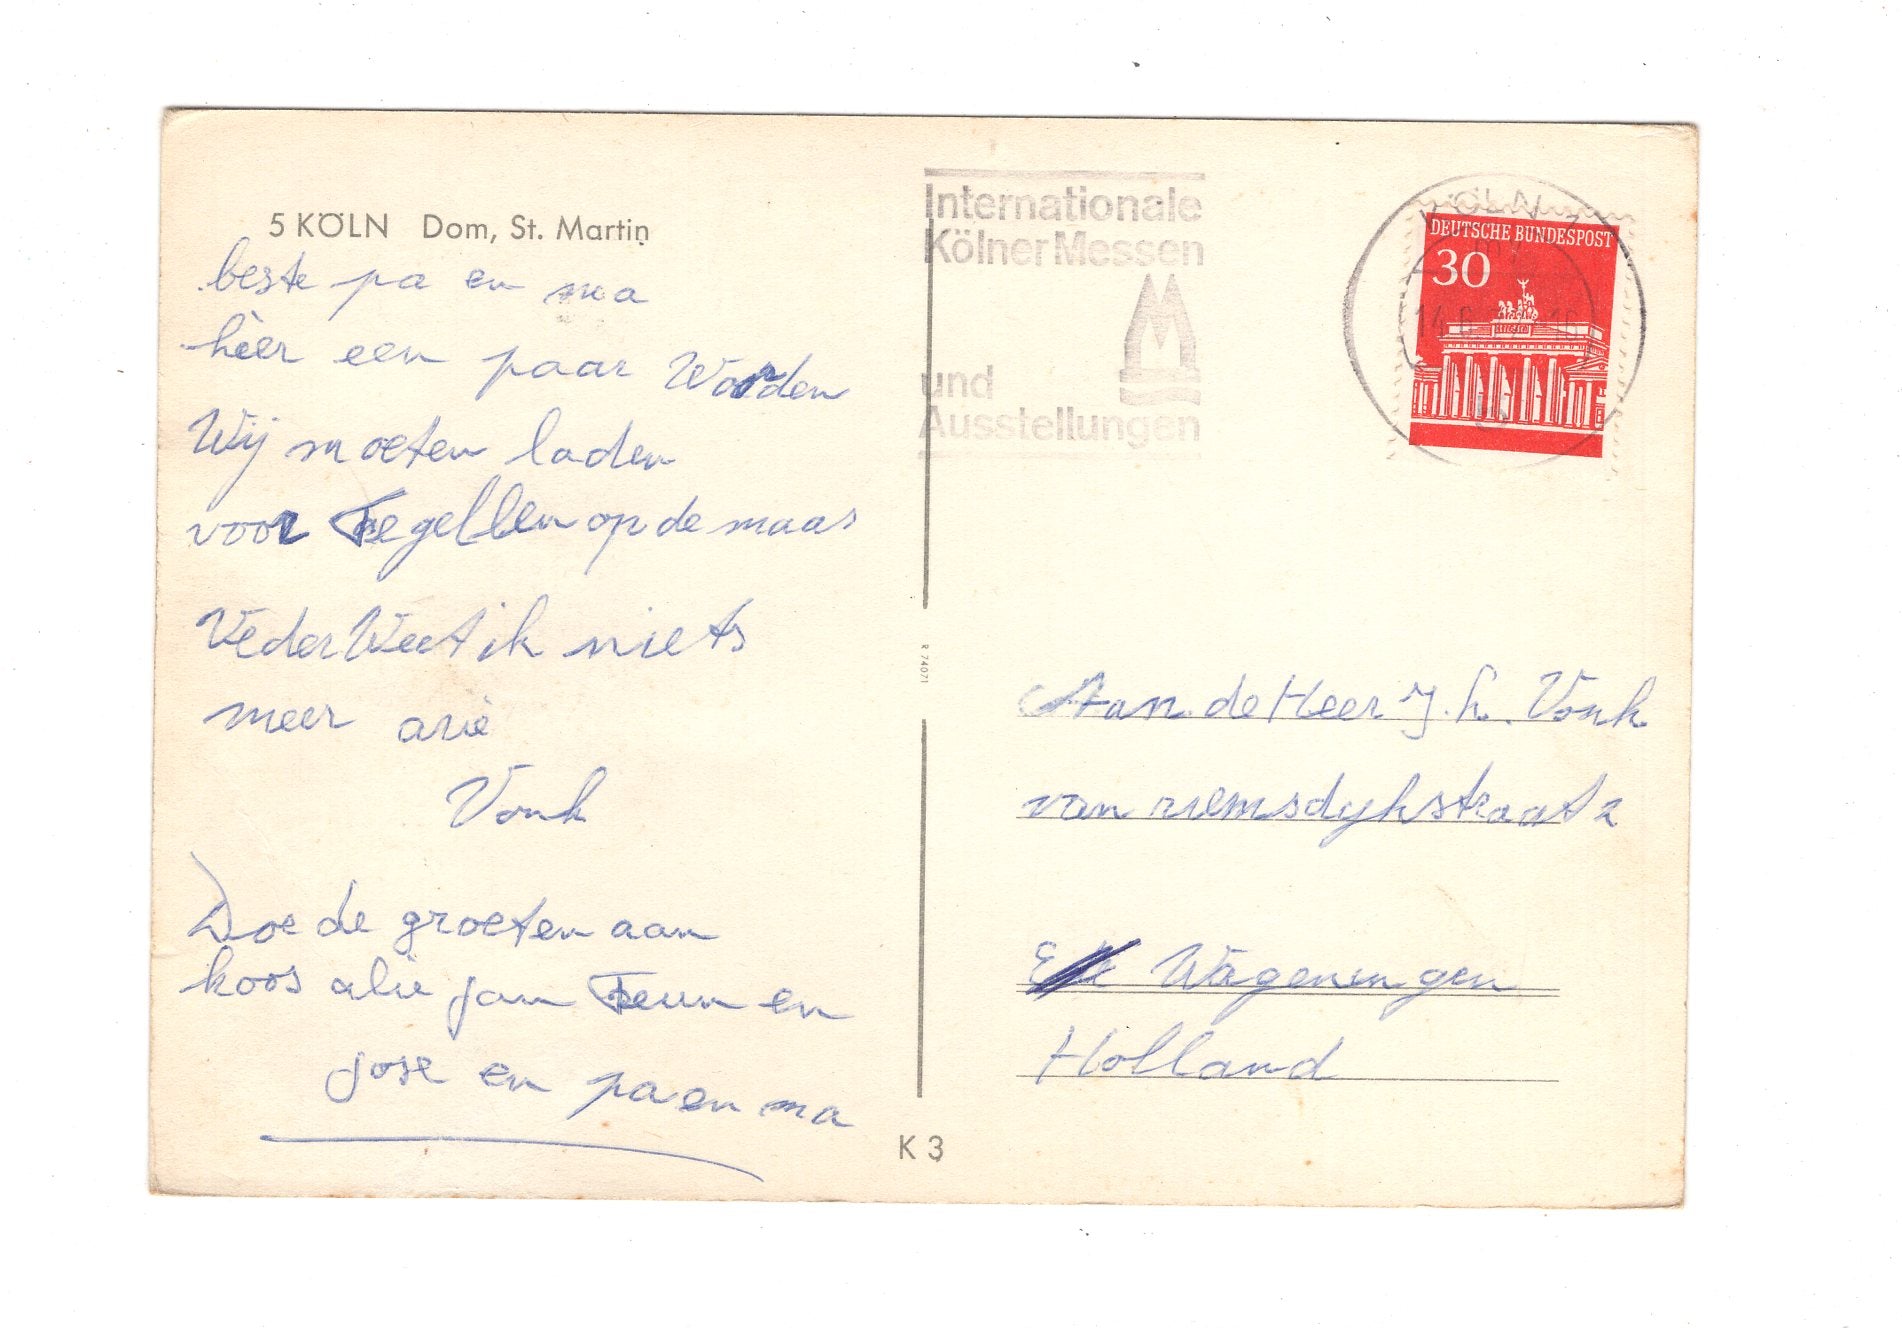 5 KÖLN Dom, St. Martin
beste pa en ma
hèer een paar Worden
Wij moeten laden
voor Tegellen op de maas
Veder Weet ik niets
meer arie
Vonk
Doe de groeten aan
koos alie jan Teun en
jose en pa en ma
Internationale
Kölner Messen
und
Ausstellungen
KÖLN
14.6
DEUTSCHE BUNDESPOST
30
R 74071
Aan de Heer J. h. Vonk
van riemsdykstraat 2
Wageningen
Holland
K 3